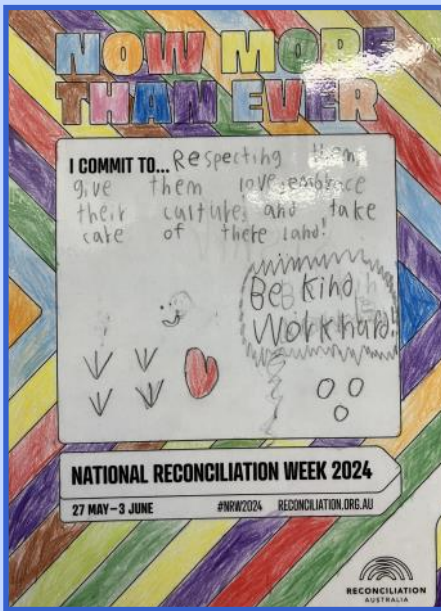 NOW MORE
THAN EVER
I COMMIT TO... Respecting them,
give them love, embrace
their cultures and take
care of there land!
Be kind
Work hard!!
NATIONAL RECONCILIATION WEEK 2024
27 MAY – 3 JUNE #NRW2024 RECONCILIATION.ORG.AU
RECONCILIATION
AUSTRALIA